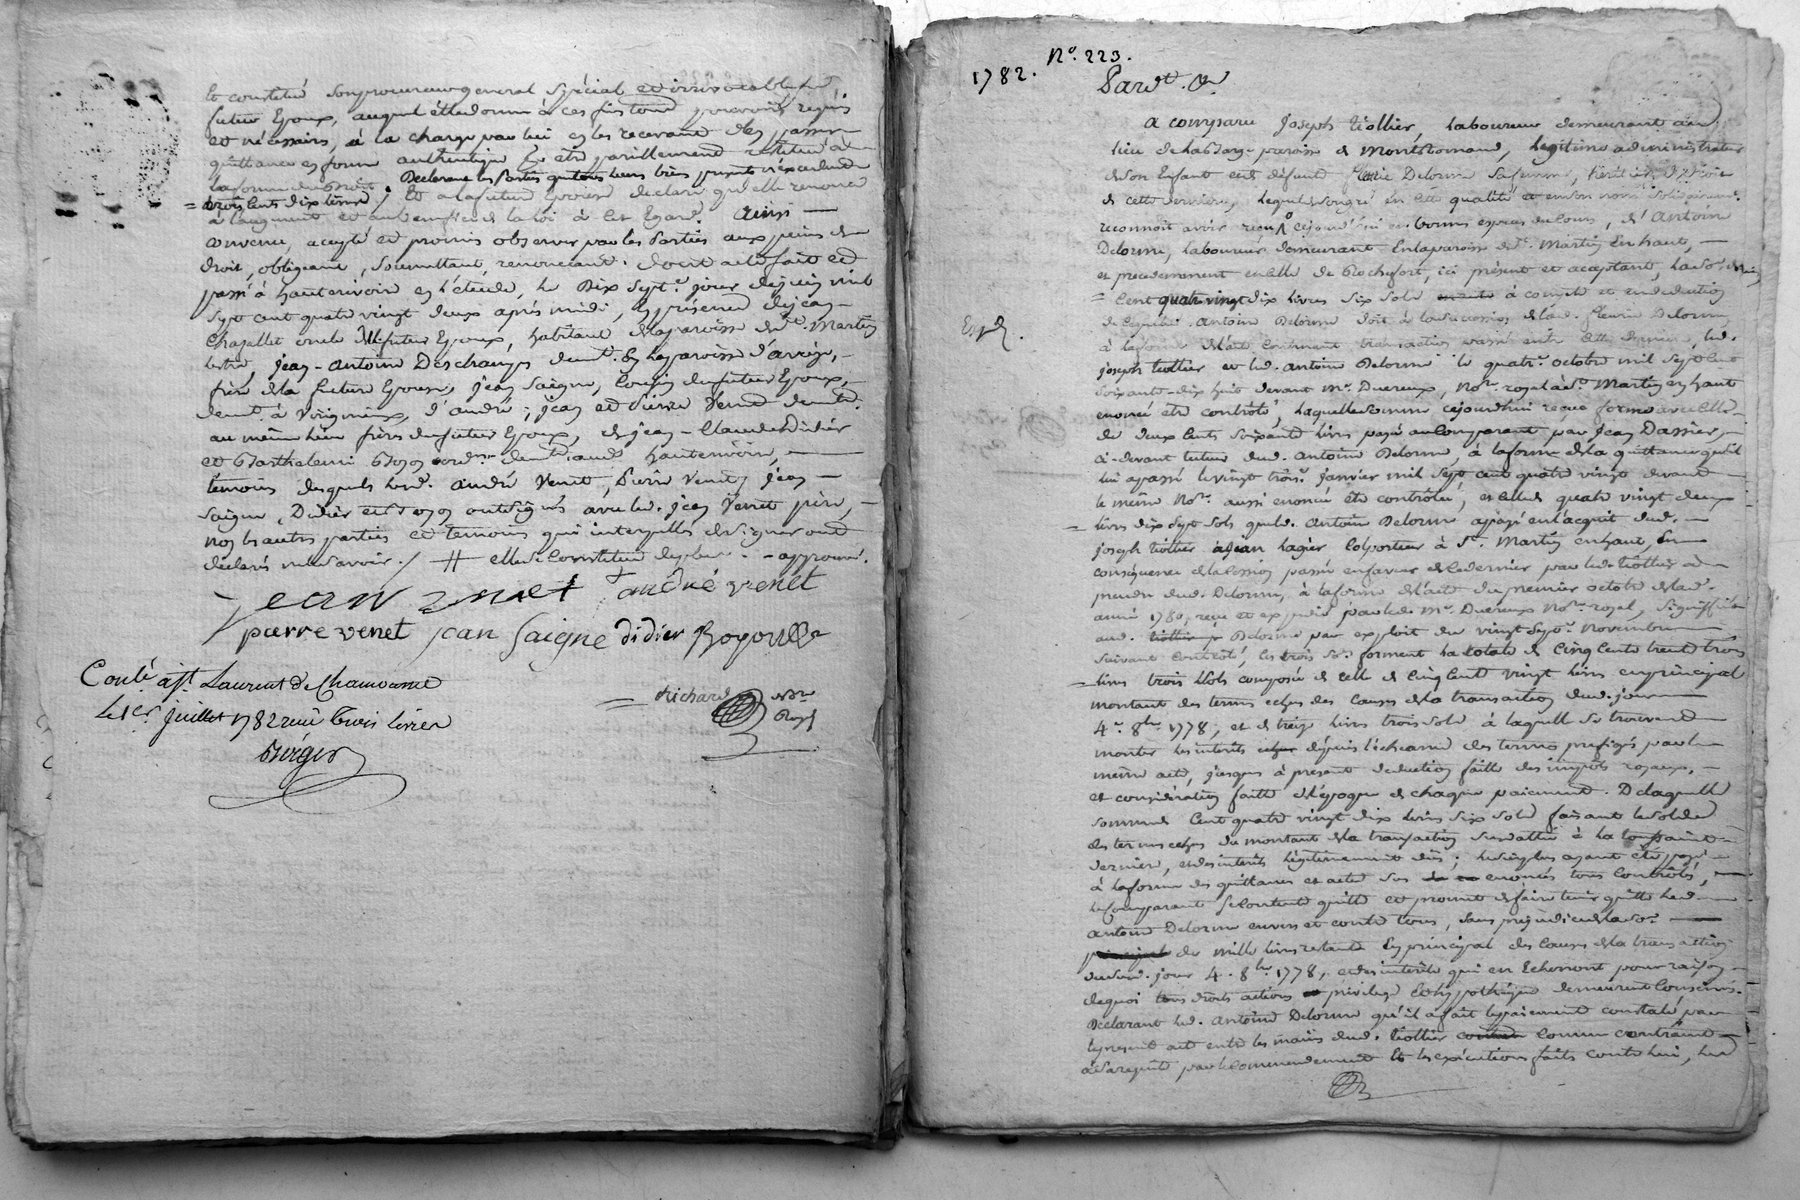 et constitué son procureur general spécial et irrévocable led.
futur Epoux, auquel elle donne à ces fins tous pouvoirs requis
et nécessaires, à la charge par lui en les recevant d'en passer
quittances en forme authentique
Déclarant les parties que tous leurs biens présents n'excedent
trois cents dix livres, Et a la future Epouse declaré qu'elle renonce
à l'augment et au benefice de la loi à cet Egard. Ainsi
convenu, accepté et promis observer par les Parties aux peines de
droit, obligeant, soumettant, renonçant. dont acte fait et
passé à hauterivoire en l'étude, le Dix sept.e jour de juin mil
sept cent quatre vingt deux après midi, En présence de jean
Chazallet oncle du futur Epoux, habitant de la paroisse de St. Martin
lestra, jean-Antoine Deschamps demt. En la paroisse d'
frère de la future Epouse, jean Saigne, Cousin du futur Epoux,
demt. à Virigneux, d'andré, jean et Pierre Venet demt.
au même lieu frères du futur Epoux, de jean-Claude Didier
et Barthelemi demt. aud. hauterivoire,
temoins desquels led. andré Venet, Pierre Venet, jean
Saigne, Didier et ont signés avec led. jean Venet père,
non les autres parties et temoins qui interpellés de signer ont
déclarés ne le savoir ./ # elle se constitue de plus. - approuvé.
jean venet andré venet
pierre venet jean Saigne didier
Conlé. à St. Laurent de Chamousset
Le 1er. juillet 1782 reçu trois livres
Richard Nore
Royal
1782. No. 223.
Pardt. &.
A comparu Joseph tiollier, laboureur demeurant au
lieu de paroisse de Montromand, legitime administrateur
de son Enfant et de défunte fleurie Delorme sa femme, héritier de droit
de cette dernière, lequel de son gré en cette qualité et en son nom solidairemt.
reconnoit avoir reçu cejourd'hui en bonnes especes du cours, d'Antoine
Delorme, laboureur demeurant En la paroisse de St. Martin En haut,
et precedemment en celle de Rochefort, ici présent et acceptant, la so.
= Cent quatre vingt dix livres six sols à compte et en deduction
de ce que led. Antoine Delorme doit à la succession de lad. fleurie Delorme
Expé.
à la forme de l'acte contenant transaction passé entre cette derniere, led.
joseph tiollier et led. antoine Delorme le quatr. octobre mil sept cent
soixante-dix huit devant Me. Ducreux, Nore. royal à St. Martin en haut
enoncé etre contrôlé, laquelle somme cejourd'hui reçue forme avec celle
de deux cents soixante livres payé au comparant par jean Dassier,
ci-devant tuteur dud. antoine Delorme, à la forme de la quittance qu'il
lui a passé le vingt trois. janvier mil sept cent quatre vingt devant
le même Nore. aussi enoncé etre contrôlée, et celle de quatre vingt deux
= livres dix sept sols que led. Antoine Delorme a payé en l'acquit dud.
joseph tiollier à jean hagier Colporteur à St. Martin en haut, En
conséquence de la cession passé en faveur de ce dernier par led. tiollier à
prendre dud. Delorme, à la forme de l'acte du premier octobre de lad.
année 1780, reçu et expedié par led. Me. Ducreux Nore. royal, signiffiée
aud. Delorme par exploit du vingt sept. Novembre
suivant contrôlé, les trois so. forment la totale de Cinq cents trente trois
= livres trois sols composée de celle de cinq cent vingt livres en principal
montant des termes echus des causes de la transaction dud. jour
4e. 8bre. 1778, et de treize livres trois sols à laquelle se trouvent
monter les interêts depuis l'écheance des termes prefigés par le
même acte, jusques à present deduction faitte des impôts royaux,
et considération faitte de l'époque de chaque paiement. De laquelle
somme de Cent quatre vingt dix livres six sols faisant le solde
des termes echus du montant de la transaction susdattée à la toussaint
derniere, et des interêts légitimement dûs; le surplus ayant été payé
à la forme des quittances et actes sus enoncés tous contrôlés,
le comparant se contente quitte et promet de faire tenir quitte led.
antoine Delorme envers et contre tous, sans préjudice de la so.
de mille livres restante En principal des causes de la transaction
dud. jour 4. 8bre. 1778, et des interêts qui en Echerront pour raison
de quoi tous droits actions privilege et hypothèque demeurent conservés.
Déclarant led. Antoine Delorme qu'il a fait le paiement constaté par
le present acte entre les mains dud. tiollier comme contraint
à sa requête par le commandement et les exécutions faits contre lui, led